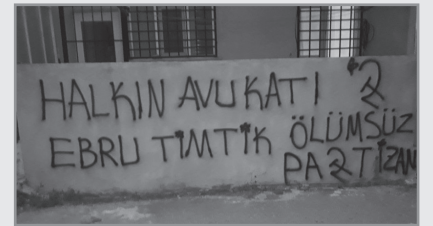 HALKIN AVUKATI
EBRU TİMTİK ÖLÜMSÜZ
PARTİZAN